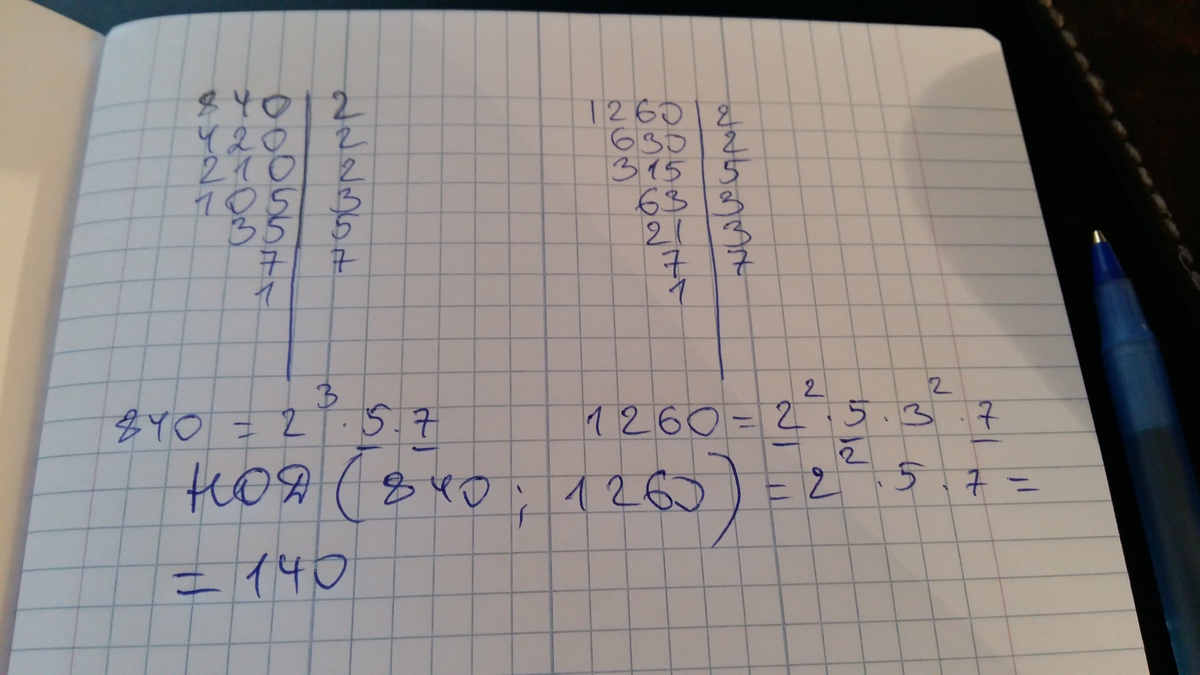 840 | 2
420 | 2
210 | 2
105 | 3
35 | 5
7 | 7
1 |
1260 | 2
630 | 2
315 | 5
63 | 3
21 | 3
7 | 7
1 |
840 = 2³ · 5 · 7
1260 = 2² · 5 · 3² · 7
НОД (840; 1260) = 2² · 5 · 7 =
= 140